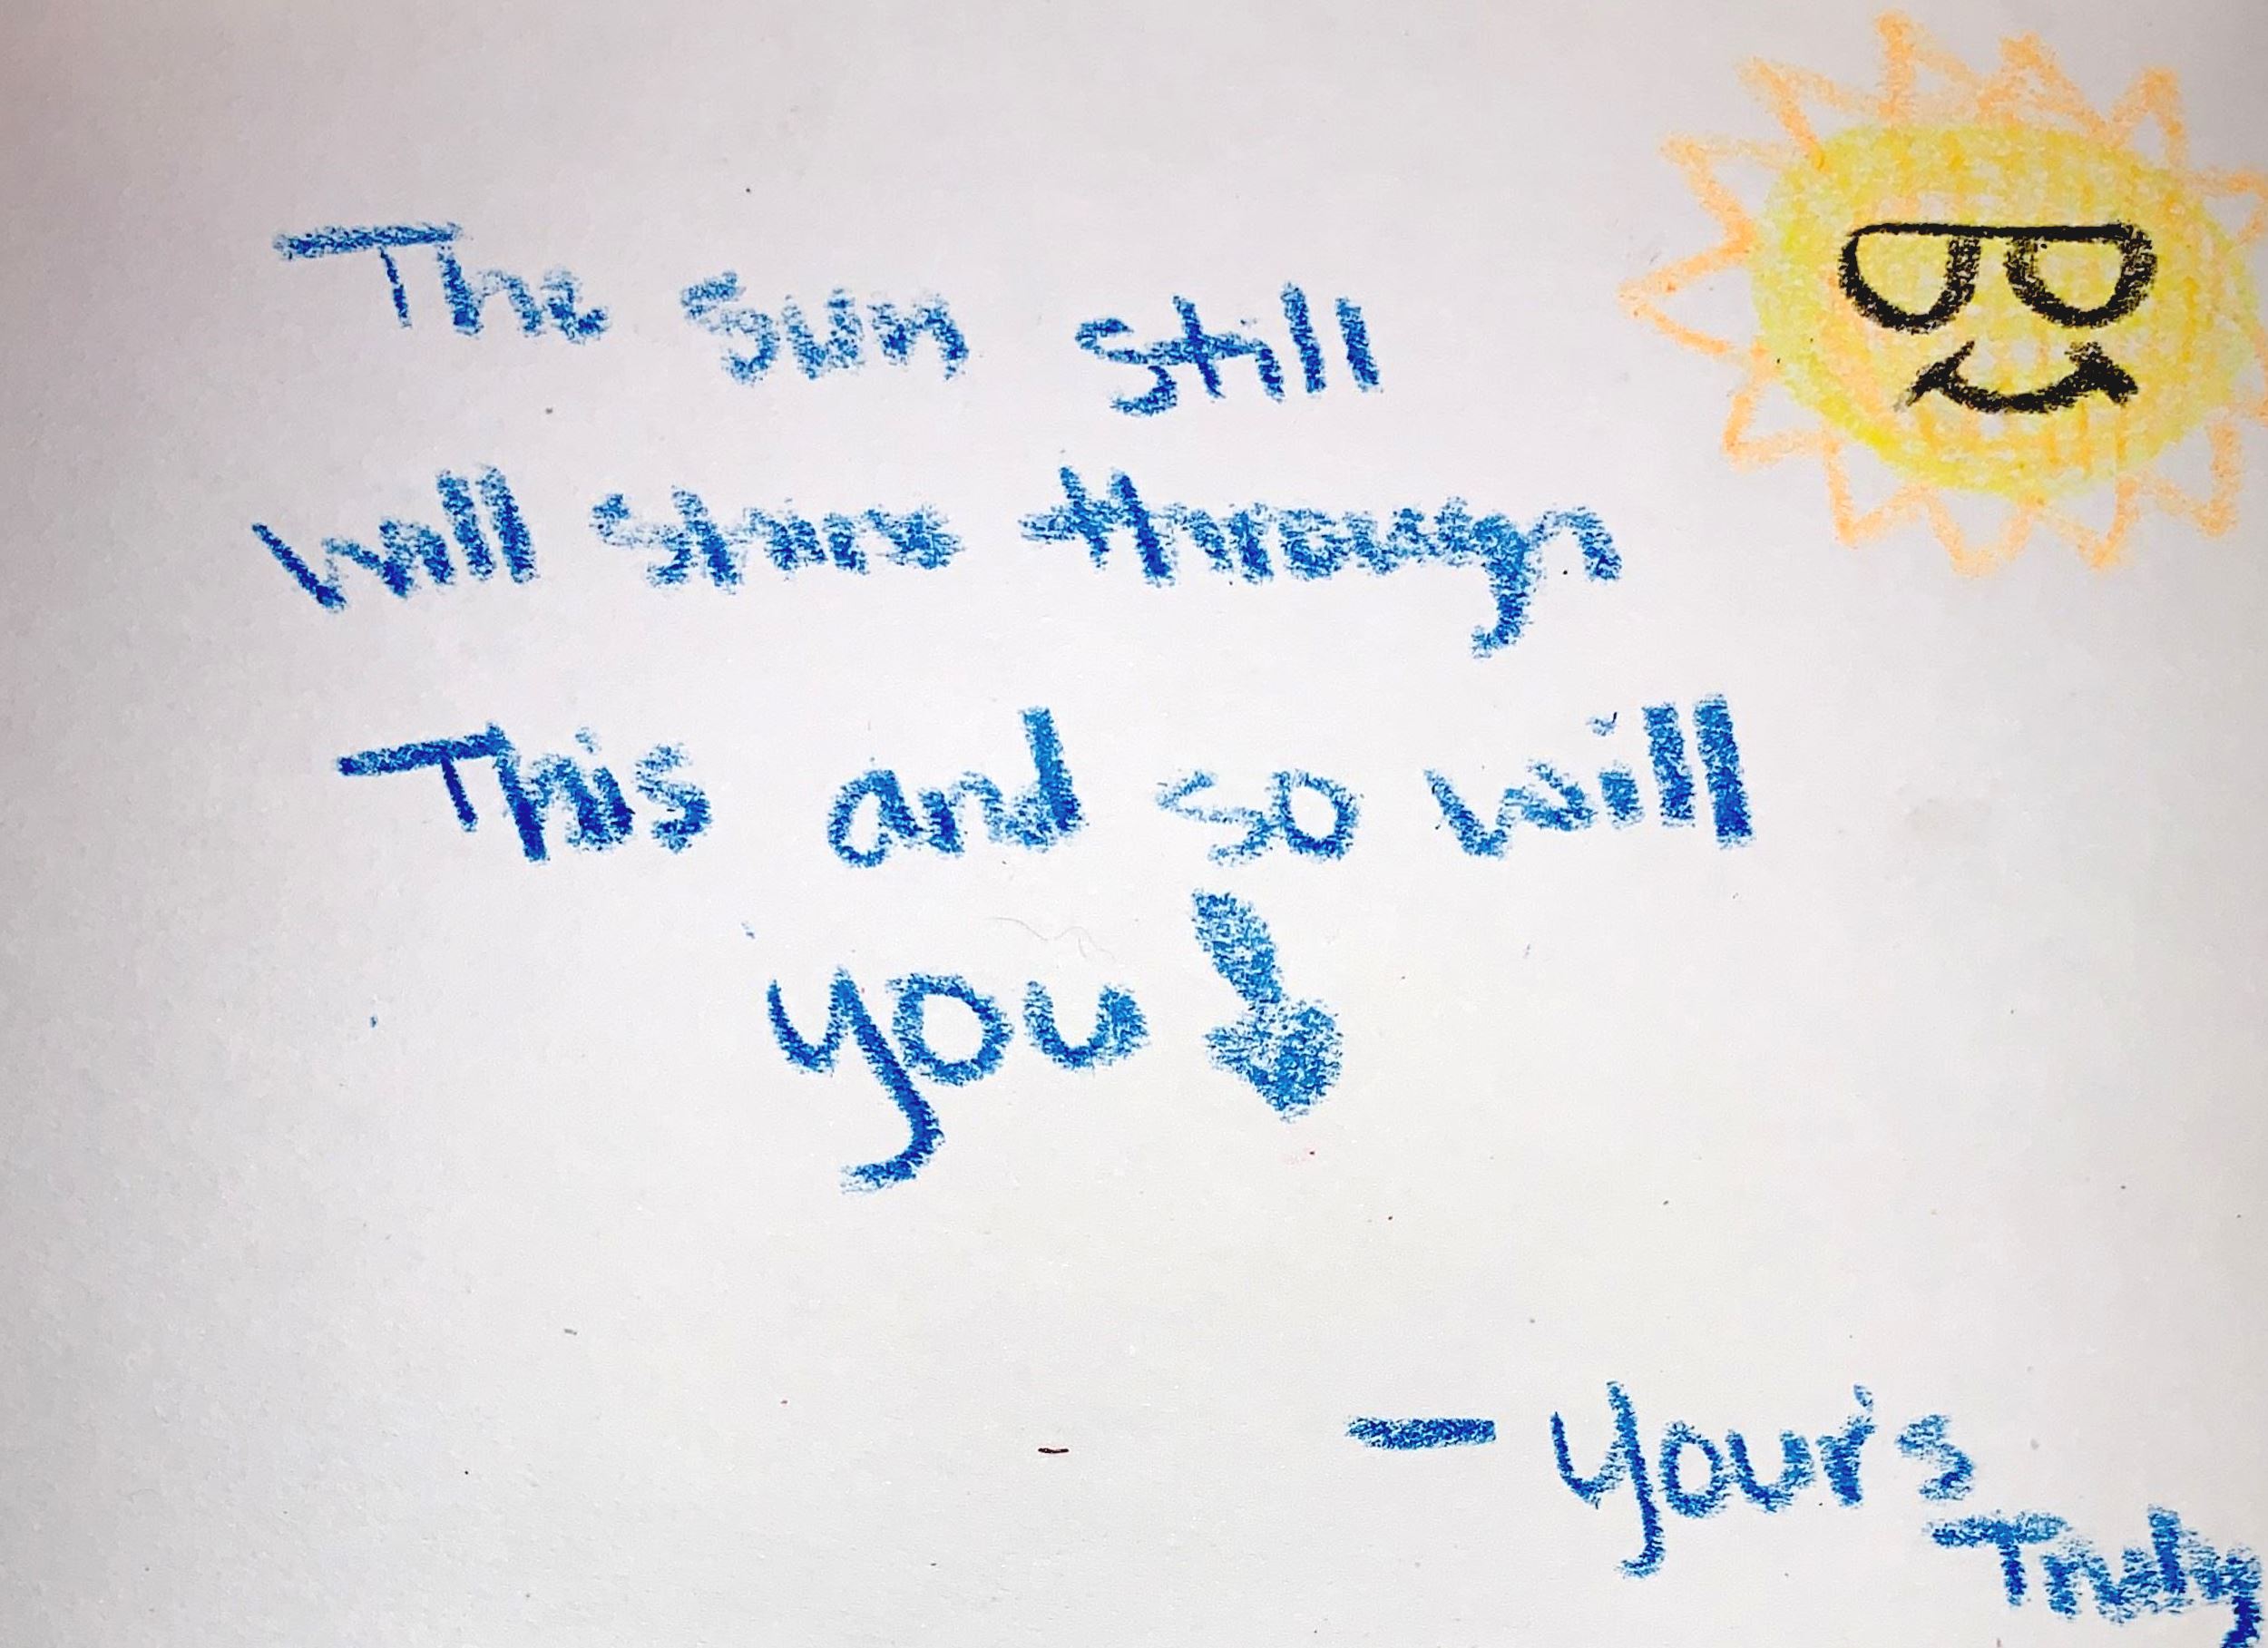 The sun still
will shine through
This and so will
you!
— Your's
Truly